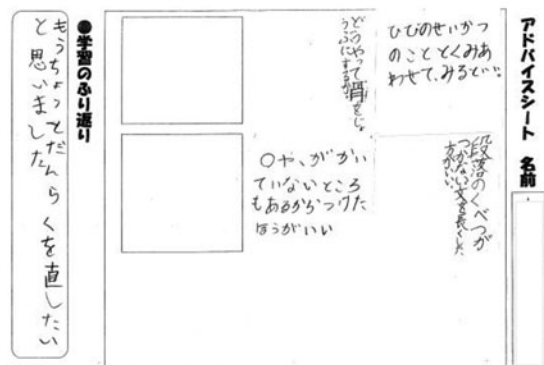 アドバイスシート 名前
ひびのせいかつ
のこととくみあ
わせて、みるとい。
段落のくべつが
つかない文を長くした
方がいい。
どうやって骨をじょ
うぶにするか。
〇や、がかい
ていないところ
もあるからつけた
ほうがいい
●学習のふり返り
もうちょっとだんらくを直したい
と思いました